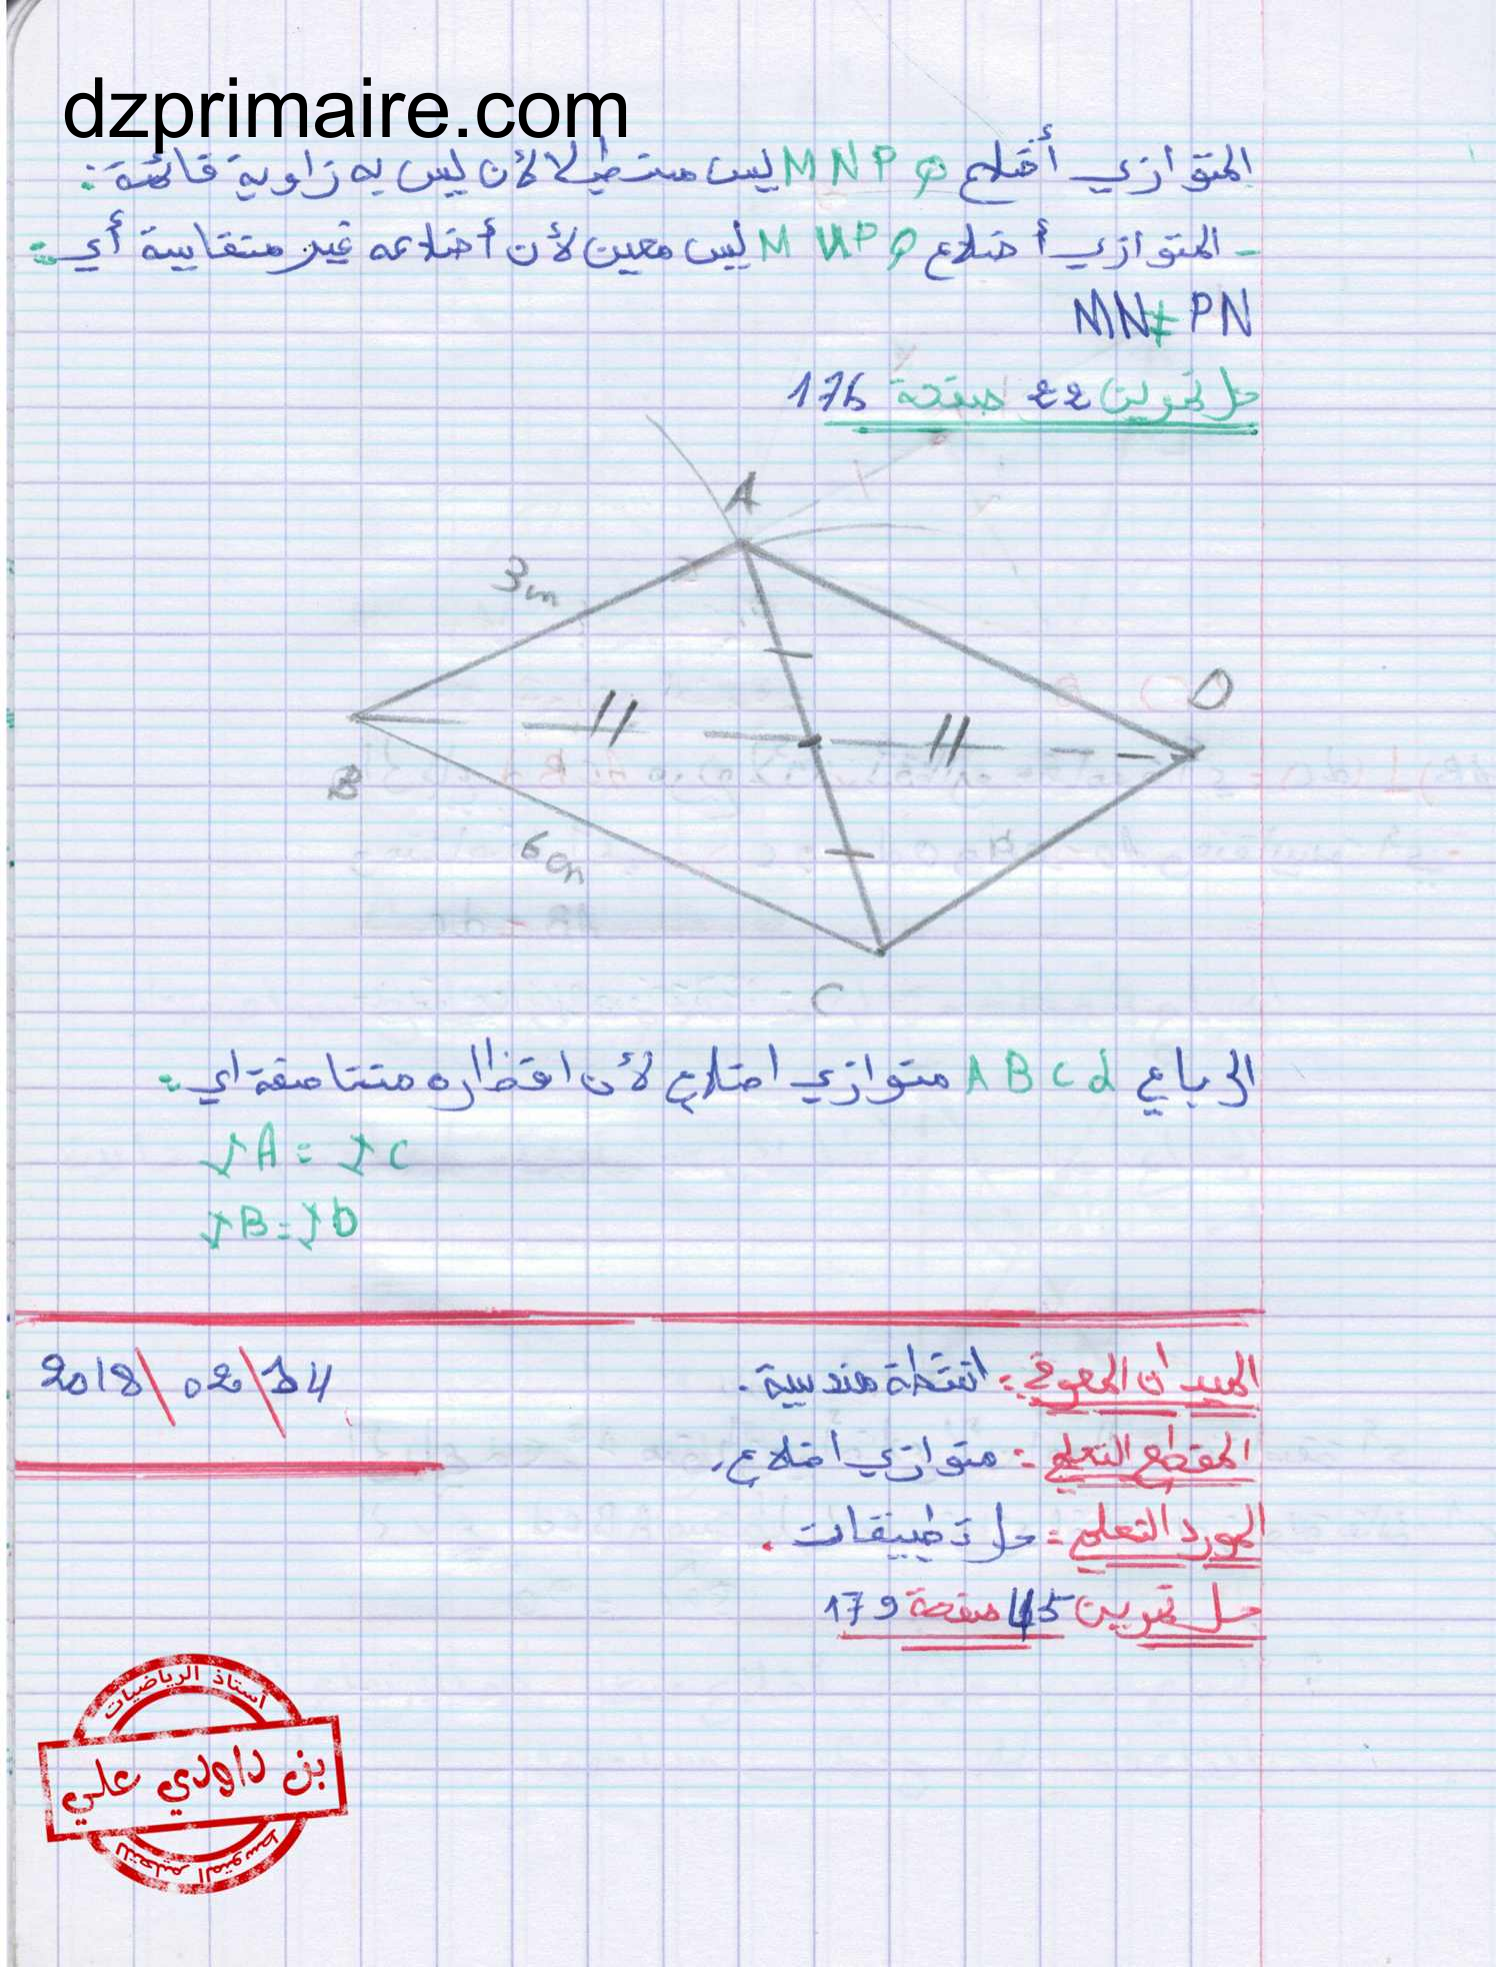 dzprimaire.com
المتوازي أضلاع MNPQ ليس مستطيلا لأن ليس به زاوية قائمة:
- المتوازي أضلاع MNPQ ليس معين لأن أضلاعه غير متقايسة أي:
MN≠PN
حل تمرين 22 صفحة 176
A
3cm
D
B
6cm
C
الرباعي ABCd متوازي اضلاع لأن اقطاره متناصفة اي:
IA = IC
IB = ID
الميدان المعرفي: انشطة هندسية.
2018/02/14
المقطع التعلمي: متوازي اضلاع.
المورد التعلمي: حل تطبيقات.
حل تمرين 45 صفحة 179
أستاذ الرياضيات
بن داودي علي
للتعليم المتوسط